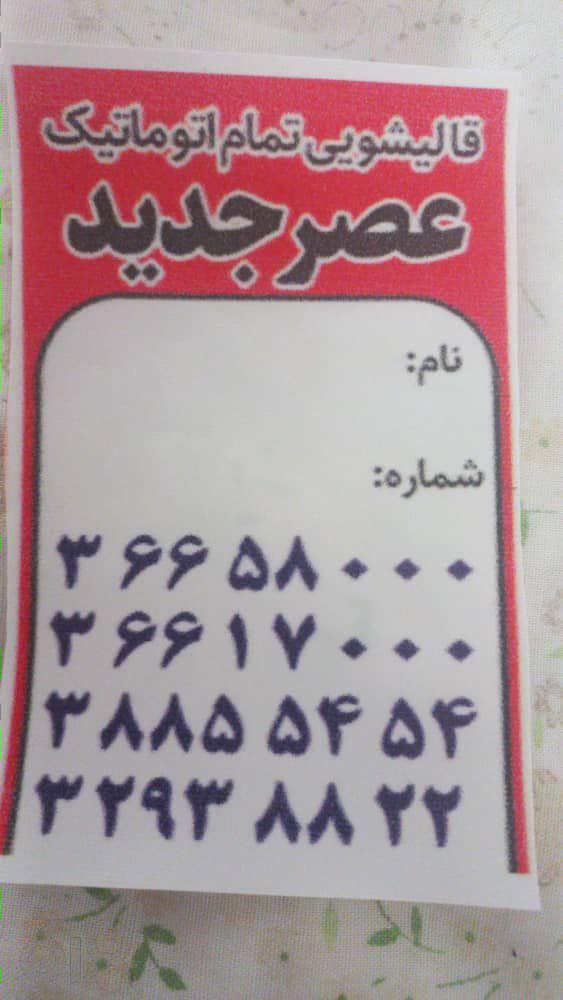 قالیشویی تمام اتوماتیک
عصر جدید
نام:
شماره:
۳۶۶۵۸۰۰۰
۳۶۶۱۷۰۰۰
۳۸۸۵۵۴۵۴
۳۲۹۳۸۸۲۲